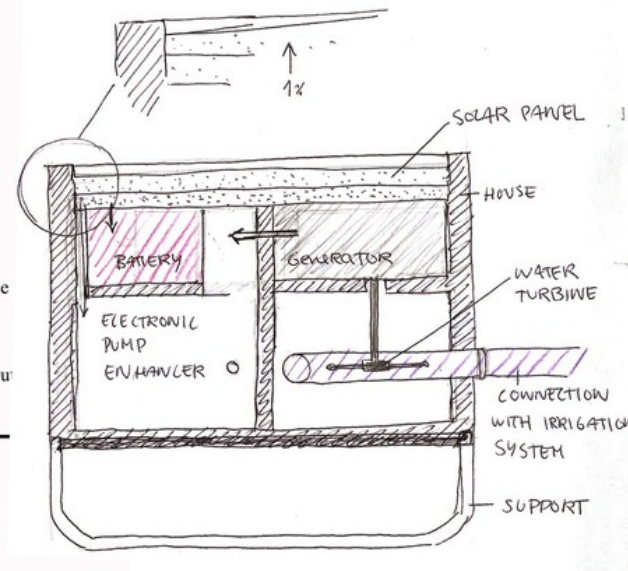 1%
SOLAR PANEL
HOUSE
BATTERY
GENERATOR
WATER
TURBINE
e
ELECTRONIC
PUMP
ENHANCER
CONNECTION
WITH IRRIGATIO
SYSTEM
SUPPORT